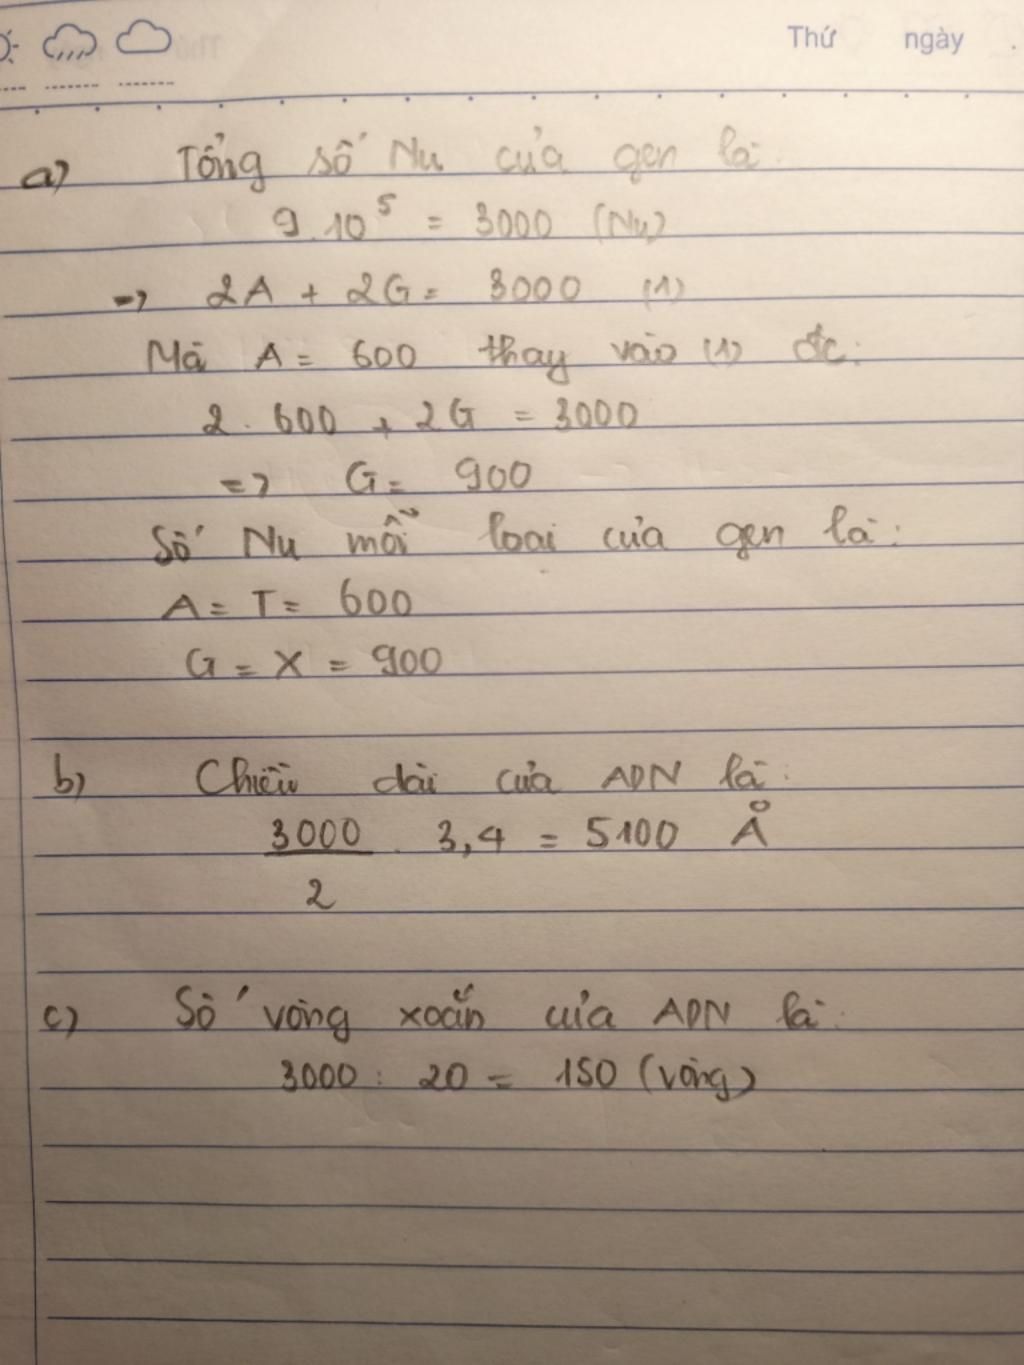 Thứ ngày
a) Tổng số Nu của gen là:
9.10⁵ = 3000 (Nu)
=> 2A + 2G = 3000 (1)
Mà A = 600 thay vào (1) đc:
2. 600 + 2G = 3000
=> G = 900
Số Nu mỗi loại của gen là:
A = T = 600
G = X = 900
b) Chiều dài của ADN là:
3000/2 . 3,4 = 5100 Å
c) Số vòng xoắn của ADN là:
3000 : 20 = 150 (vòng)